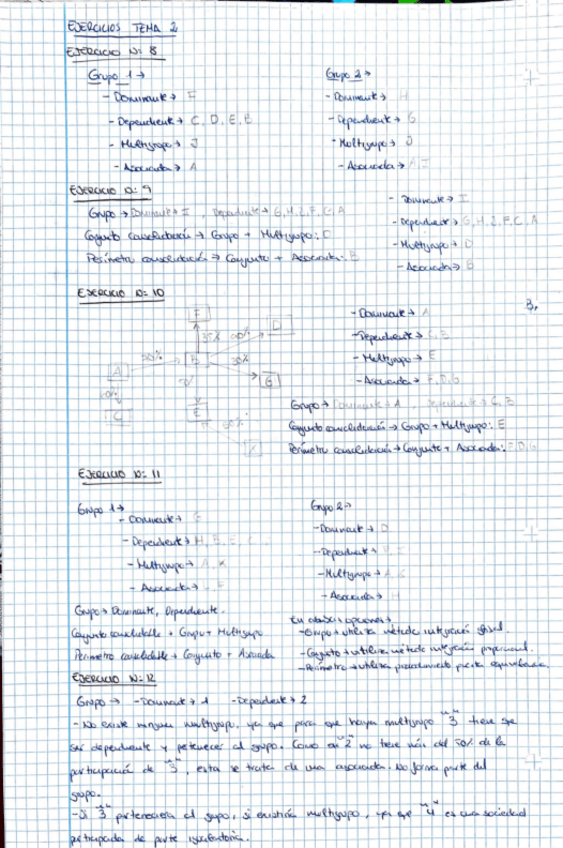 EJERCICIOS TEMA 2
EJERCICIO Nº 8
Grupo 1 →
- Dominante → F
- Dependiente → C, D, E, B
- Multigrupo → J
- Asociada → A
Grupo 2 →
- Dominante → H
- Dependiente → G
- Multigrupo → J
- Asociada → A, I
EJERCICIO Nº 9
Grupo → Dominante → I, Dependiente → G, H, F, C, A
Conjunto consolidación → Grupo + Multigrupo: D
Perímetro consolidación → Conjunto + Asociada: B
- Dominante → I
- Dependiente → G, H, F, C, A
- Multigrupo → D
- Asociada → B
EJERCICIO Nº 10
F
D
A
B
G
C
E
- Dominante → A
- Dependiente → C, B
- Multigrupo → E
- Asociada → F, D, G
Grupo → Dominante → A, Dependiente → C, B
Conjunto consolidación → Grupo + Multigrupo: E
Perímetro consolidación → Conjunto + Asociada: F, D, G
EJERCICIO Nº 11
Grupo 1 →
- Dominante → G
- Dependiente →
- Multigrupo →
- Asociada →
Grupo 2 →
- Dominante →
- Dependiente →
- Multigrupo →
- Asociada → H
Grupo → Dominante, Dependiente.
Conjunto consolidable → Grupo + Multigrupo
Perímetro consolidable → Conjunto + Asociada
En ambas opciones →
- Grupo → utiliza método integración global.
- Conjunto → utiliza método integración proporcional.
- Perímetro → utiliza procedimiento puesta equivalencia.
EJERCICIO Nº 12
Grupo → - Dominante → 1 - Dependiente → 2
- No existe ningún multigrupo, ya que para que haya multigrupo "3" tiene que
ser dependiente y pertenecer al grupo. Como en "2" no tiene más del 50% de la
participación de "3", esta se trata de una asociada. No forma parte del
grupo.
- Si "3" perteneciera al grupo, si existiría multigrupo, ya que "4" es una sociedad
participada de parte